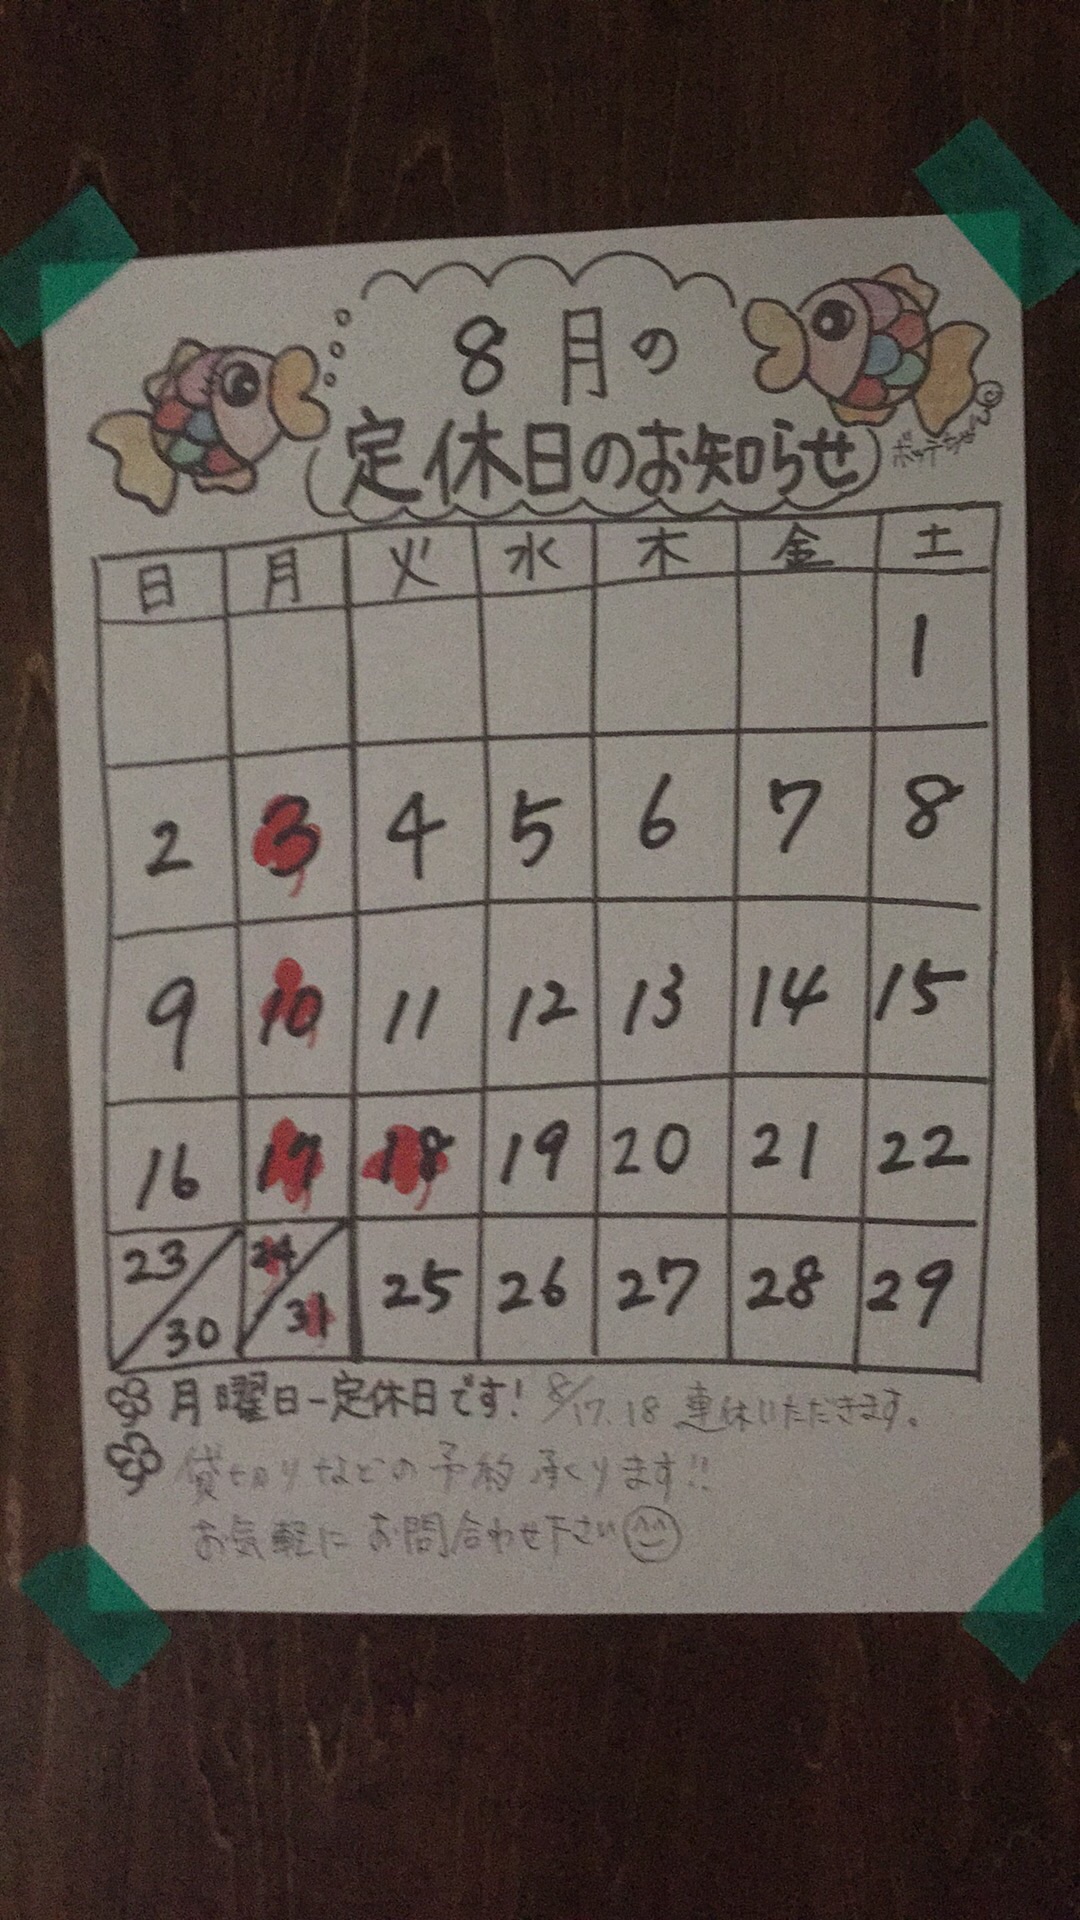 8月の
定休日のお知らせ
ボッテちゃん
日 月 火 水 木 金 土
1
2 3 4 5 6 7 8
9 10 11 12 13 14 15
16 17 18 19 20 21 22
23/30 24/31 25 26 27 28 29
月曜日-定休日です! 8/17.18 連休いただきます。
貸切りなどの予約承ります!!
お気軽にお問合わせ下さい